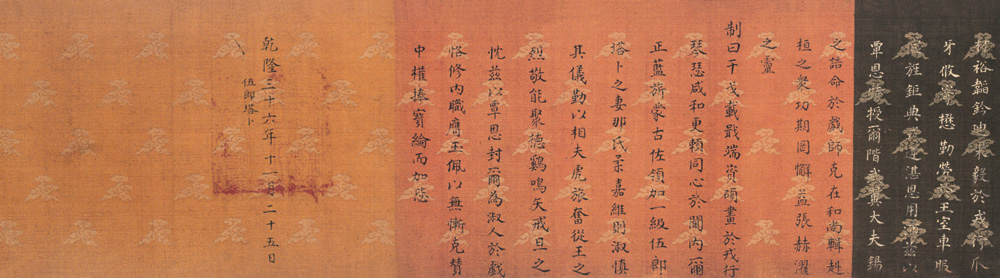 裕韜鈐迪果毅於戎行爪
牙攸寄懋勤勞於王室車服
旌鉅典湛恩用茲以
覃恩特授爾階武大夫錫
之誥命於戲師克在和尚輯赳
桓之衆功期罔懈益張赫濯
之靈
制曰干戈載戢端資碩畫於戎行
琴瑟咸和更賴同心於閫內爾
正藍旗蒙古佐領加一級伍郎
塔卜之妻那氏柔嘉維則淑慎
其儀勤以相夫虎旅奮從王之
烈敬能聚德鷄鳴矢戒旦之
忱茲以覃恩封爾為淑人於戲
恪修內職膺玉佩以無慚克贊
中權捧寶綸而加
乾隆三十六年十一月二十五日
伍郎塔卜